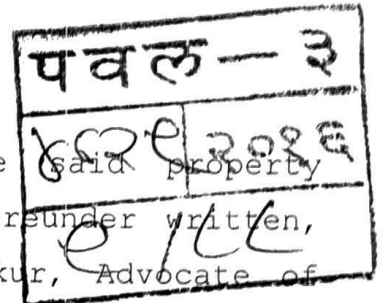 पवल — ३
२०१६
e said property
reunder written,
९ / ८८
kur, Advocate of